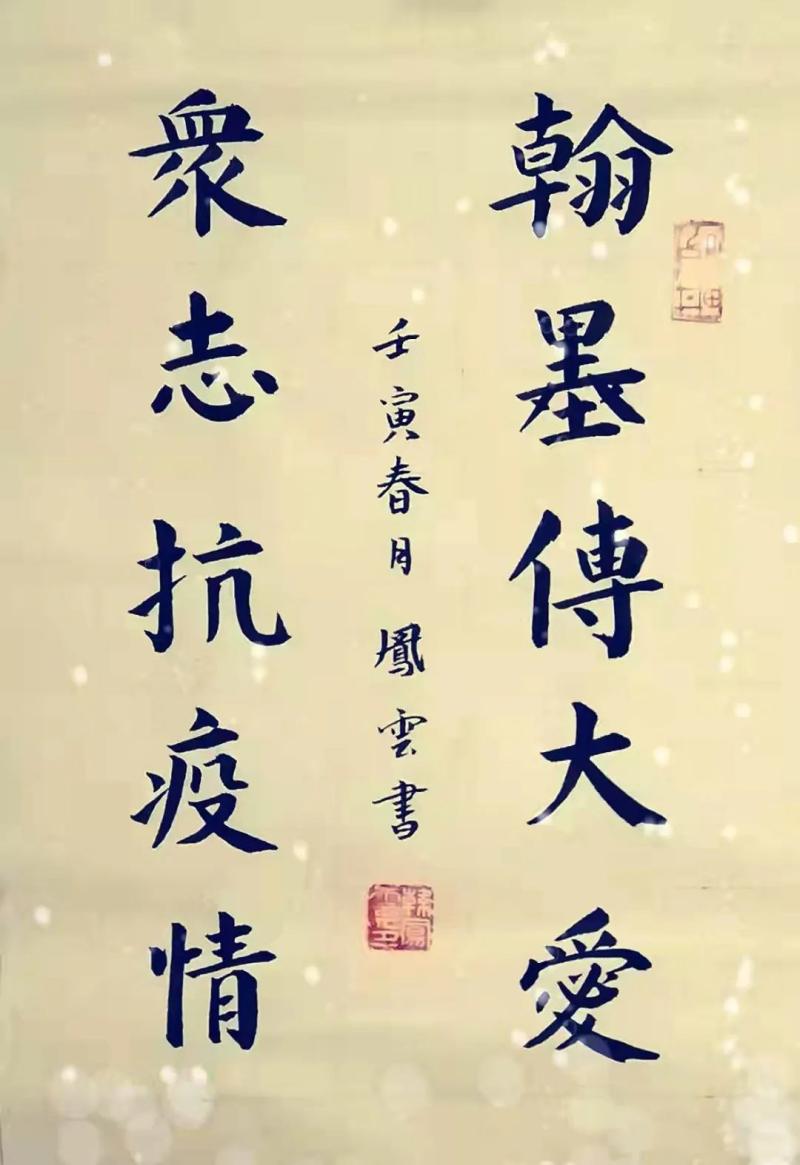 翰墨傳大愛
眾志抗疫情
壬寅春月 鳳雲書